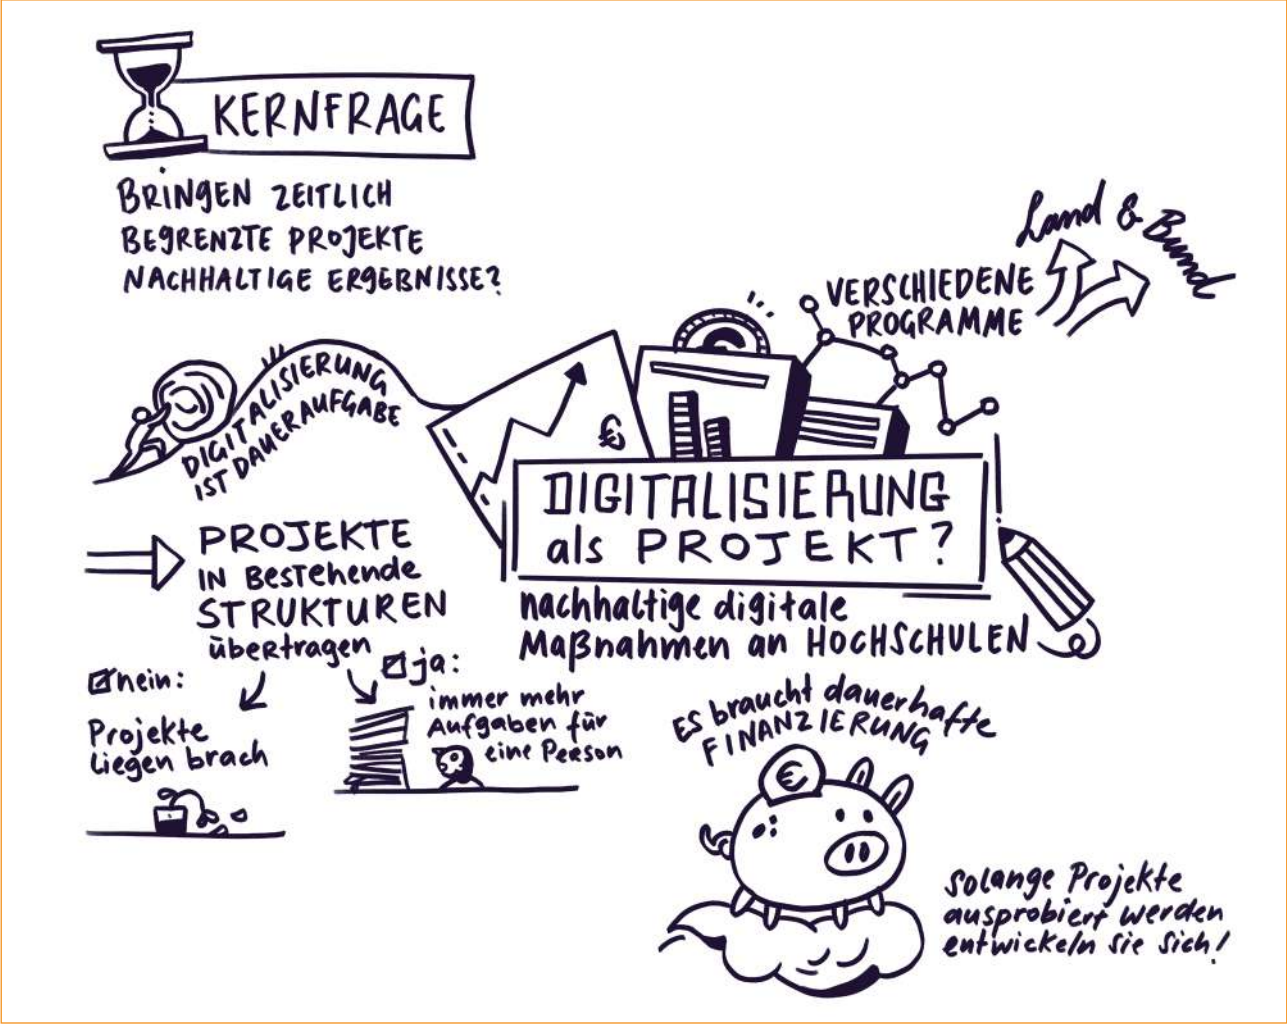 KERNFRAGE
BRINGEN ZEITLICH
BEGRENZTE PROJEKTE
NACHHALTIGE ERGEBNISSE?
Land & Bund
VERSCHIEDENE
PROGRAMME
DIGITALISIERUNG
IST DAUERAUFGABE
€
DIGITALISIERUNG
als PROJEKT?
nachhaltige digitale
Maßnahmen an HOCHSCHULEN
PROJEKTE
IN BESTEhende
STRUKTUREN
übertragen
nein:
Projekte
liegen brach
ja:
immer mehr
Aufgaben für
eine Person
ES braucht dauerhafte
FINANZIERUNG
€
solange Projekte
ausprobiert werden
entwickeln sie sich!